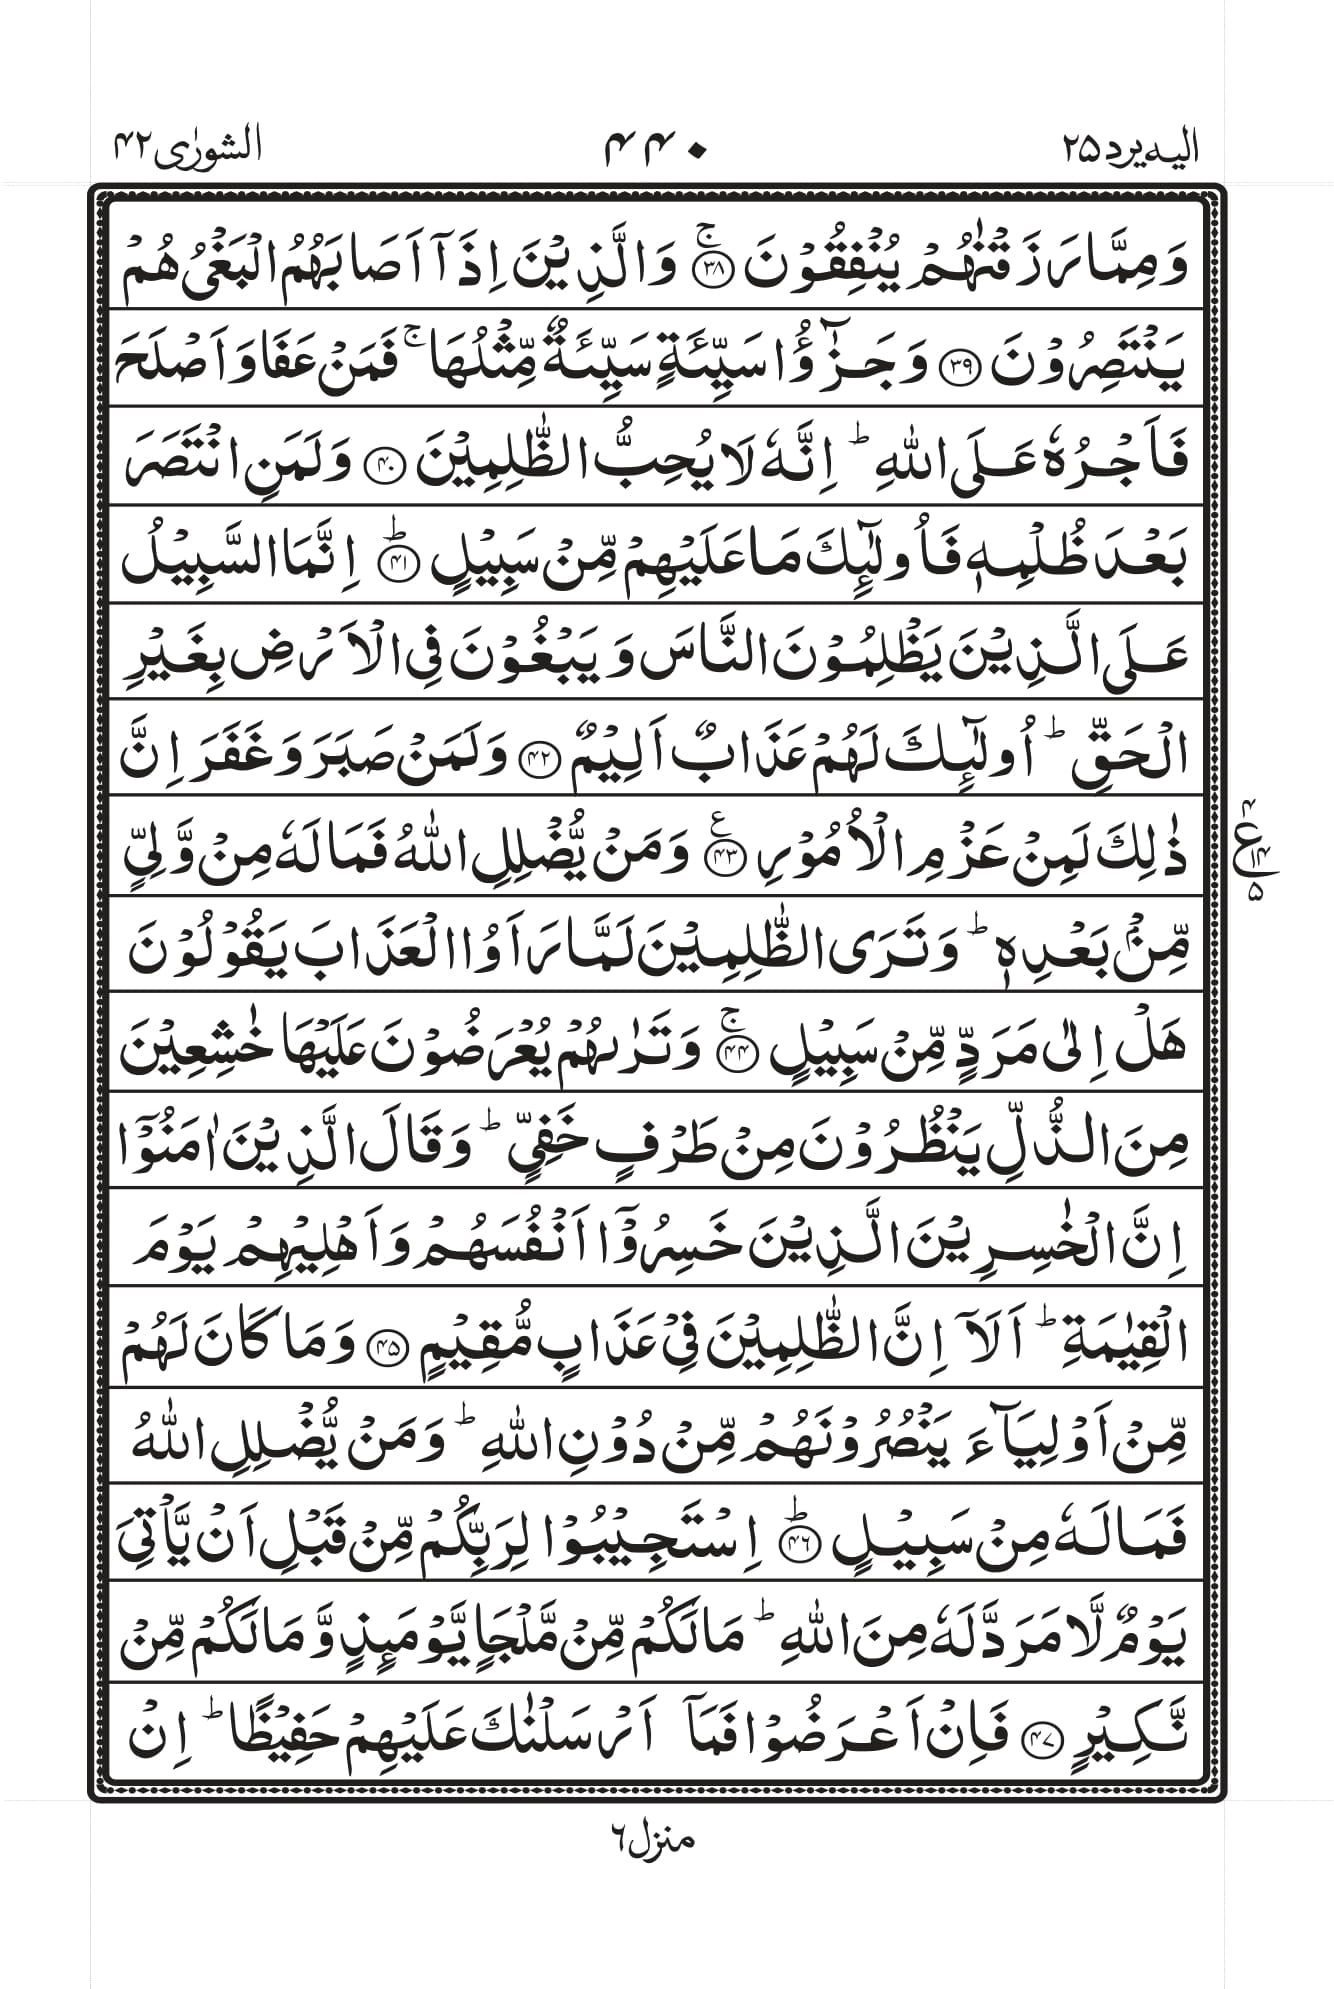 الیه یرد ۲۵
۴۴۰
الشورٰی ۴۲
وَمِمَّا رَزَقْنٰهُمْ يُنْفِقُوْنَ ﴿۳۸﴾ۚ وَالَّذِيْنَ اِذَآ اَصَابَهُمُ الْبَغْيُ هُمْ
يَنْتَصِرُوْنَ ﴿۳۹﴾ وَجَزٰٓؤُا سَيِّئَةٍ سَيِّئَةٌ مِّثْلُهَا ۚ فَمَنْ عَفَا وَاَصْلَحَ
فَاَجْرُهٗ عَلَى اللّٰهِ ؕ اِنَّهٗ لَا يُحِبُّ الظّٰلِمِيْنَ ﴿۴۰﴾ وَلَمَنِ انْتَصَرَ
بَعْدَ ظُلْمِهٖ فَاُولٰٓئِكَ مَا عَلَيْهِمْ مِّنْ سَبِيْلٍ ﴿۴۱﴾ؕ اِنَّمَا السَّبِيْلُ
عَلَى الَّذِيْنَ يَظْلِمُوْنَ النَّاسَ وَيَبْغُوْنَ فِي الْاَرْضِ بِغَيْرِ
الْحَقِّ ؕ اُولٰٓئِكَ لَهُمْ عَذَابٌ اَلِيْمٌ ﴿۴۲﴾ وَلَمَنْ صَبَرَ وَغَفَرَ اِنَّ
ذٰلِكَ لَمِنْ عَزْمِ الْاُمُوْرِ ﴿۴۳﴾ع وَمَنْ يُّضْلِلِ اللّٰهُ فَمَا لَهٗ مِنْ وَّلِيٍّ
۴
ع
۱۴
۵
مِّنْۢ بَعْدِهٖ ؕ وَتَرَى الظّٰلِمِيْنَ لَمَّا رَاَوُا الْعَذَابَ يَقُوْلُوْنَ
هَلْ اِلٰى مَرَدٍّ مِّنْ سَبِيْلٍ ﴿۴۴﴾ۚ وَتَرٰىهُمْ يُعْرَضُوْنَ عَلَيْهَا خٰشِعِيْنَ
مِنَ الذُّلِّ يَنْظُرُوْنَ مِنْ طَرْفٍ خَفِيٍّ ؕ وَقَالَ الَّذِيْنَ اٰمَنُوْٓا
اِنَّ الْخٰسِرِيْنَ الَّذِيْنَ خَسِرُوْٓا اَنْفُسَهُمْ وَاَهْلِيْهِمْ يَوْمَ
الْقِيٰمَةِ ؕ اَلَآ اِنَّ الظّٰلِمِيْنَ فِيْ عَذَابٍ مُّقِيْمٍ ﴿۴۵﴾ وَمَا كَانَ لَهُمْ
مِّنْ اَوْلِيَآءَ يَنْصُرُوْنَهُمْ مِّنْ دُوْنِ اللّٰهِ ؕ وَمَنْ يُّضْلِلِ اللّٰهُ
فَمَا لَهٗ مِنْ سَبِيْلٍ ﴿۴۶﴾ؕ اِسْتَجِيْبُوْا لِرَبِّكُمْ مِّنْ قَبْلِ اَنْ يَّاْتِيَ
يَوْمٌ لَّا مَرَدَّ لَهٗ مِنَ اللّٰهِ ؕ مَا لَكُمْ مِّنْ مَّلْجَاٍ يَّوْمَئِذٍ وَّمَا لَكُمْ مِّنْ
نَّكِيْرٍ ﴿۴۷﴾ فَاِنْ اَعْرَضُوْا فَمَآ اَرْسَلْنٰكَ عَلَيْهِمْ حَفِيْظًا ؕ اِنْ
منزل ۶